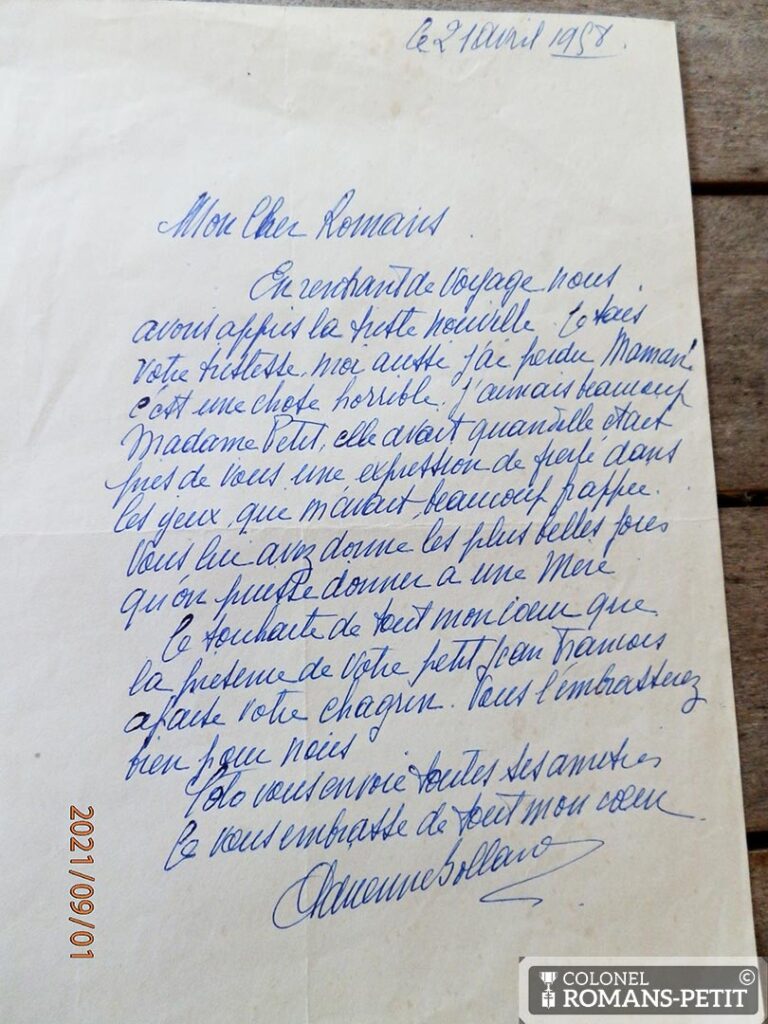 le 21 avril 1958.
Mon Cher Romans
En rentrant de voyage nous
avons appris la triste nouvelle. Je sais
votre tristesse, moi aussi j'ai perdu Maman
c'est une chose horrible. J'aimais beaucoup
Madame Petit, elle avait quand elle était
près de vous une expression de fierté dans
les yeux, que m'avait beaucoup frappée.
Vous lui avez donné les plus belles joies
qu'on puisse donner à une Mère
Je souhaite de tout mon cœur que
la présence de votre petit Jean François
apaise votre chagrin. Vous l'embrasserez
bien pour nous
Polo vous envoie toutes ses amitiés
Je vous embrasse de tout mon cœur
Adrienne Bolland
2021/09/01
COLONEL ©
ROMANS-PETIT